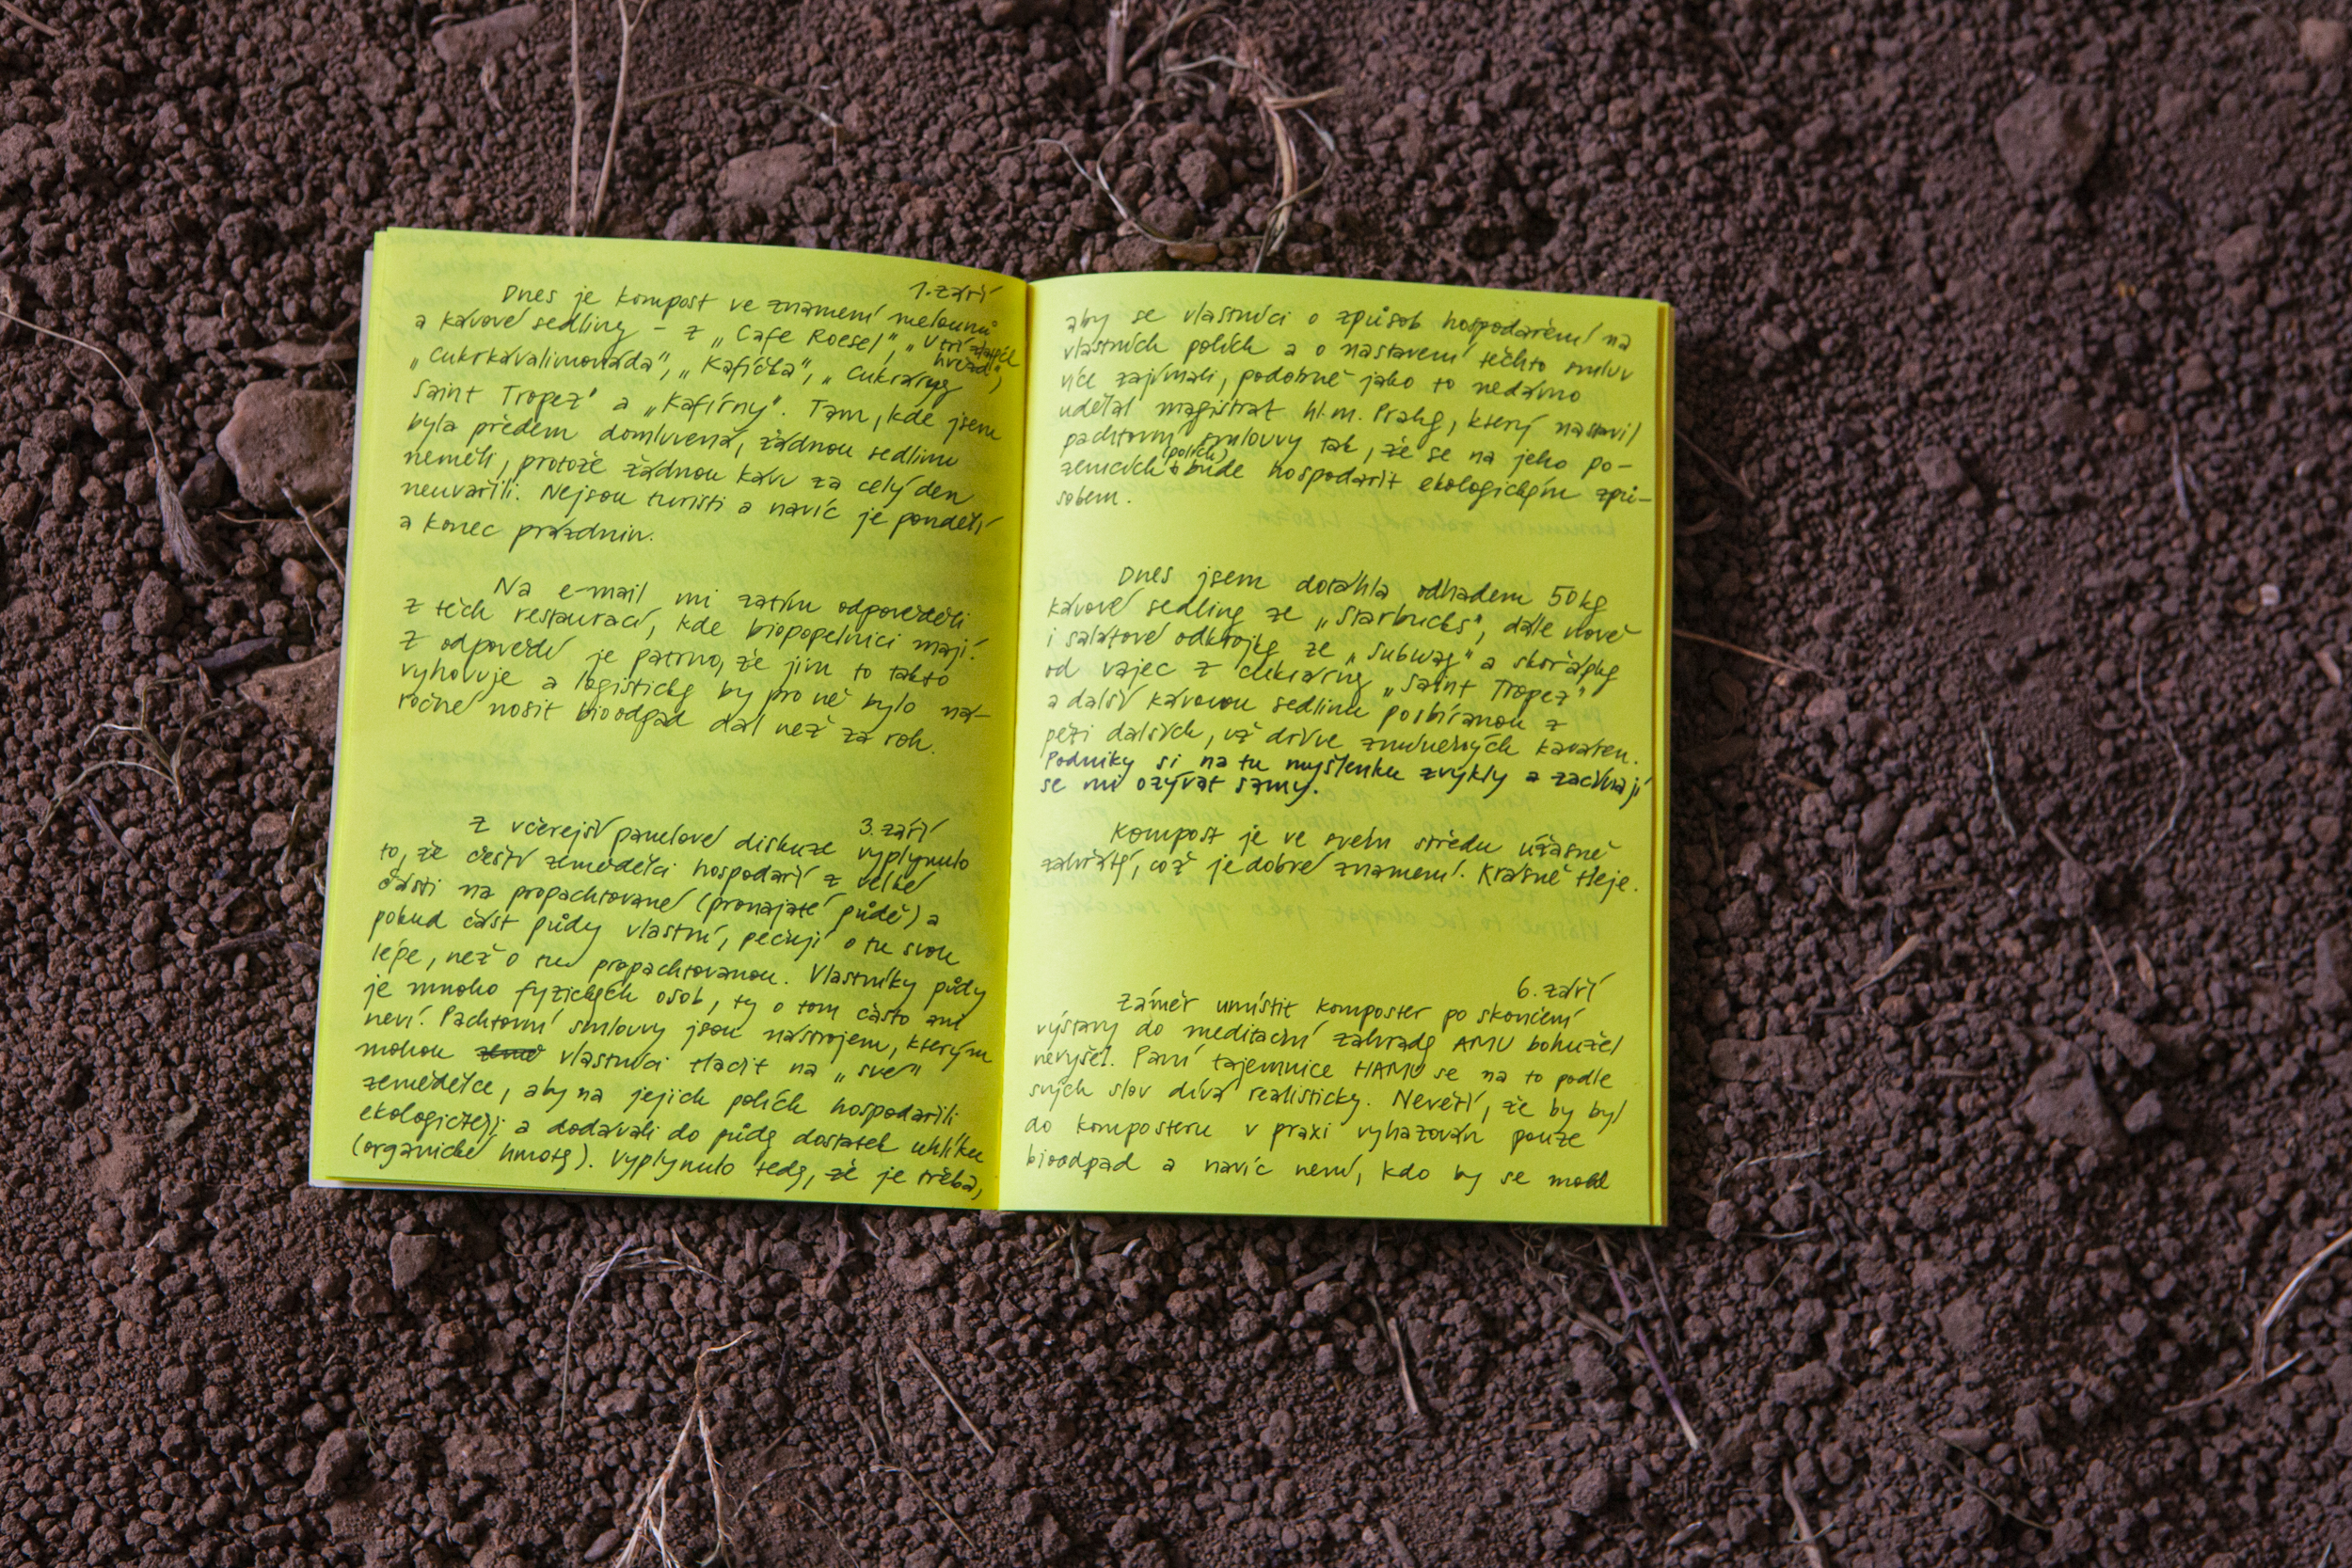 1. září
Dnes je kompost ve znamení melounů
a kávové sedliny – z „Cafe Roesel", „V tří
hvězd",
„Cukrkávalimonáda", „Kafíčka", „Cukrárny
Saint Tropez" a „Kafírny". Tam, kde jsem
byla předem domluvená, žádnou sedlinu
neměli, protože žádnou kávu za celý den
neuvařili. Nejsou turisti a navíc je pondělí
a konec prázdnin.
Na e-mail mi zatím odpověděli
z těch restaurací, kde biopopelnici mají.
Z odpovědí je patrno, že jim to takto
vyhovuje a logisticky by pro ně bylo ná-
ročné nosit bioodpad dál než za roh.
3. září
Z včerejší panelové diskuze vyplynulo
to, že čeští zemědělci hospodaří z velké
části na propachtované (pronajaté půdě) a
pokud část půdy vlastní, pečují o tu svou
lépe, než o tu propachtovanou. Vlastníky půdy
je mnoho fyzických osob, ty o tom často ani
neví. Pachtovní smlouvy jsou nástrojem, kterým
mohou země vlastníci tlačit na „své"
zemědělce, aby na jejich polích hospodařili
ekologičtěji a dodávali do půdy dostatek uhlíku
(organické hmoty). Vyplynulo tedy, že je třeba,
aby se vlastníci o způsob hospodaření na
vlastních polích a o nastavení těchto smluv
více zajímali, podobně jako to nedávno
udělal magistrát hl.m. Prahy, který nastavil
pachtovní smlouvy tak, že se na jeho po-
zemcích (polích) bude hospodařit ekologickým způ-
sobem.
Dnes jsem dotáhla odhadem 50kg
kávové sedliny ze „Starbucks", dále nově
i salátové odkrojky ze „Subway" a skořápky
od vajec z cukrárny „Saint Tropez"
a další kávovou sedlinu posbíranou z
pěti dalších, už dříve zmíněných kaváren.
Podniky si na tu myšlenku zvykly a začínají
se mi ozývat samy.
Kompost je ve svém středu úžasně
zahřátý, což je dobré znamení. Krásně tleje.
6. září
Záměr umístit kompostér po skončení
výstavy do meditační zahrady AMU bohužel
nevyšel. Paní tajemnice HAMU se na to podle
svých slov dívá realisticky. Nevěří, že by byl
do kompostéru v praxi vyhazován pouze
bioodpad a navíc není, kdo by se mohl